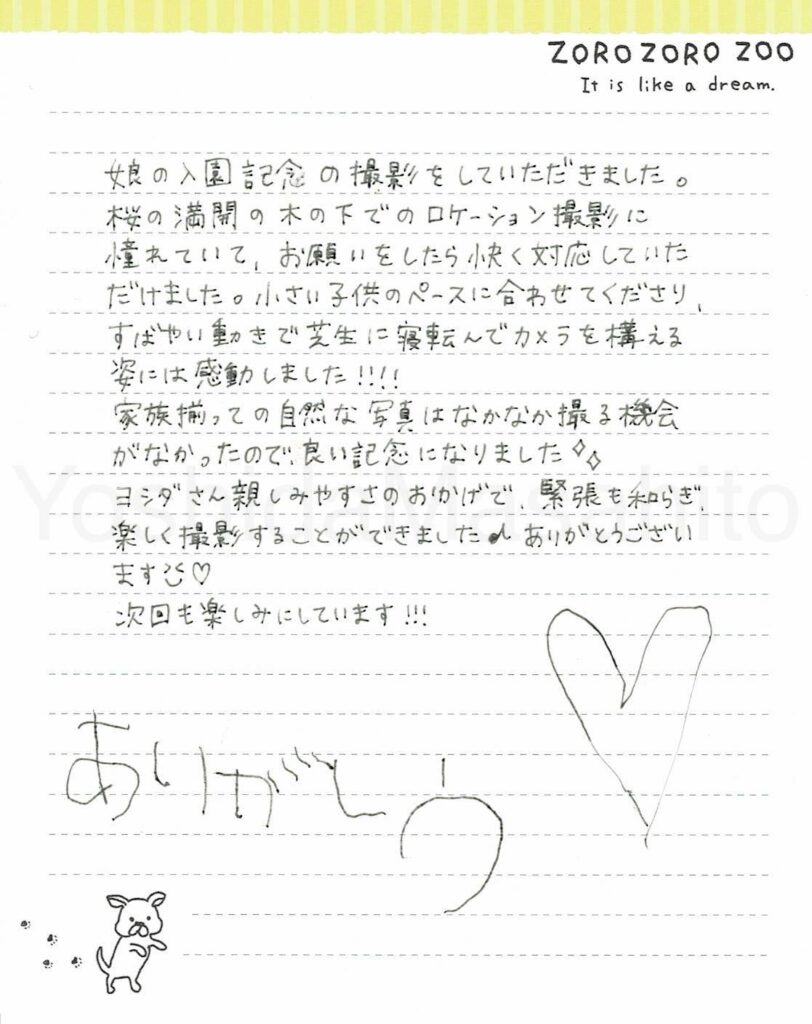 ZORO ZORO ZOO
It is like a dream.
娘の入園記念の撮影をしていただきました。
桜の満開の木の下でのロケーション撮影に
憧れていて、お願いをしたら快く対応していた
だけました。小さい子供のペースに合わせてくださり、
すばやい動きで芝生に寝転んでカメラを構える
姿には感動しました!!!!
家族揃っての自然な写真はなかなか撮る機会
がなかったので、良い記念になりました
ヨシダさん親しみやすさのおかげで、緊張も和らぎ、
楽しく撮影することができました♪ ありがとうござい
ます♡
次回も楽しみにしています!!!
ありがとう
YoshidaMasahito